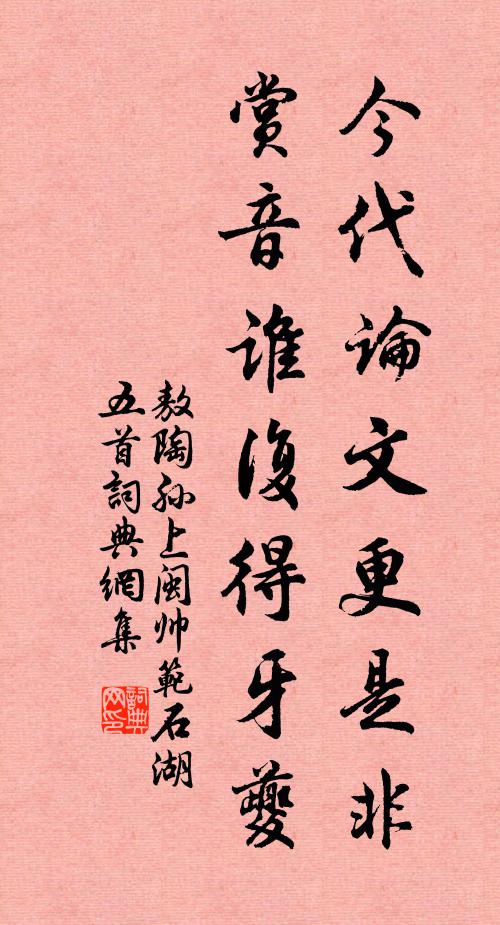 今代論文更是非
賞音誰復得牙夔
敖陶孙上閩帅範石湖
五首詞典網集
詞典網印